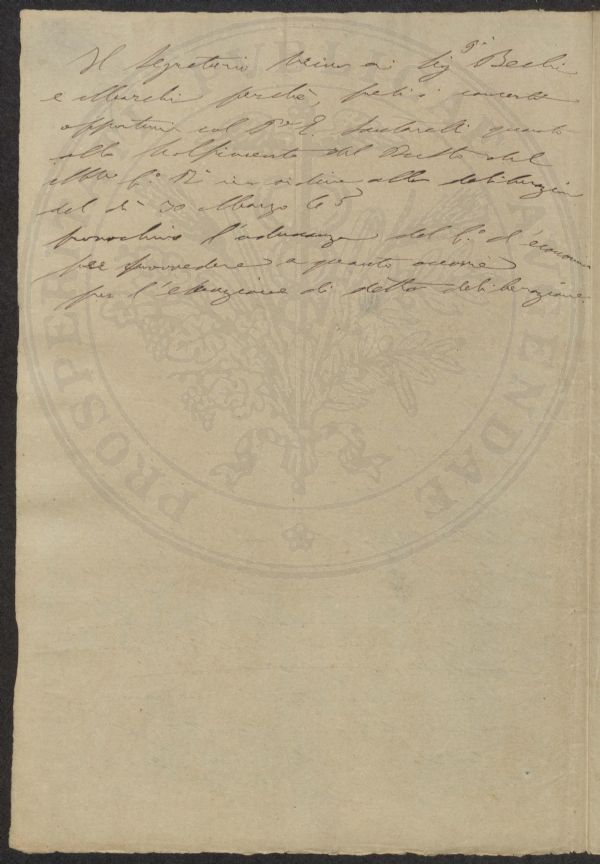 Il Segretario scriva ai Sig.ri Bechi
e Marchi perchè, presi i concerti
opportuni col P. E. Santarelli quanto
allo scolpimento del Busto del
March. C. R. in ordine alla deliberazione
del dì 30 Marzo 63
provochino l'adunanza del C.o d'economia
per provvedere a quanto occorre
per l'esecuzione di detta deliberazione.
PROSPER ENDAE